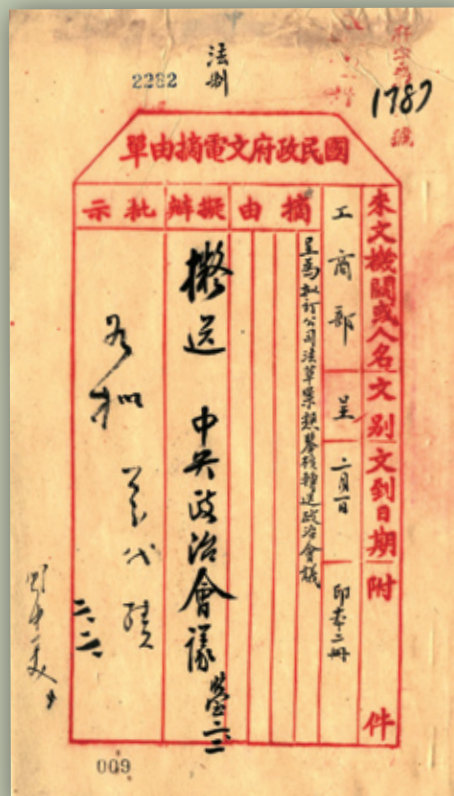 法制
2282
府字第
1787
號
國民政府文電摘由單
來文機關或人名
文別
文到日期
附件
工商部
呈
二月一日
印本二冊
摘由
呈為擬訂公司法草案懇鑒核轉送政治會議
擬辦
擬送 中央政治會議
二.二
批示
二.二.
009